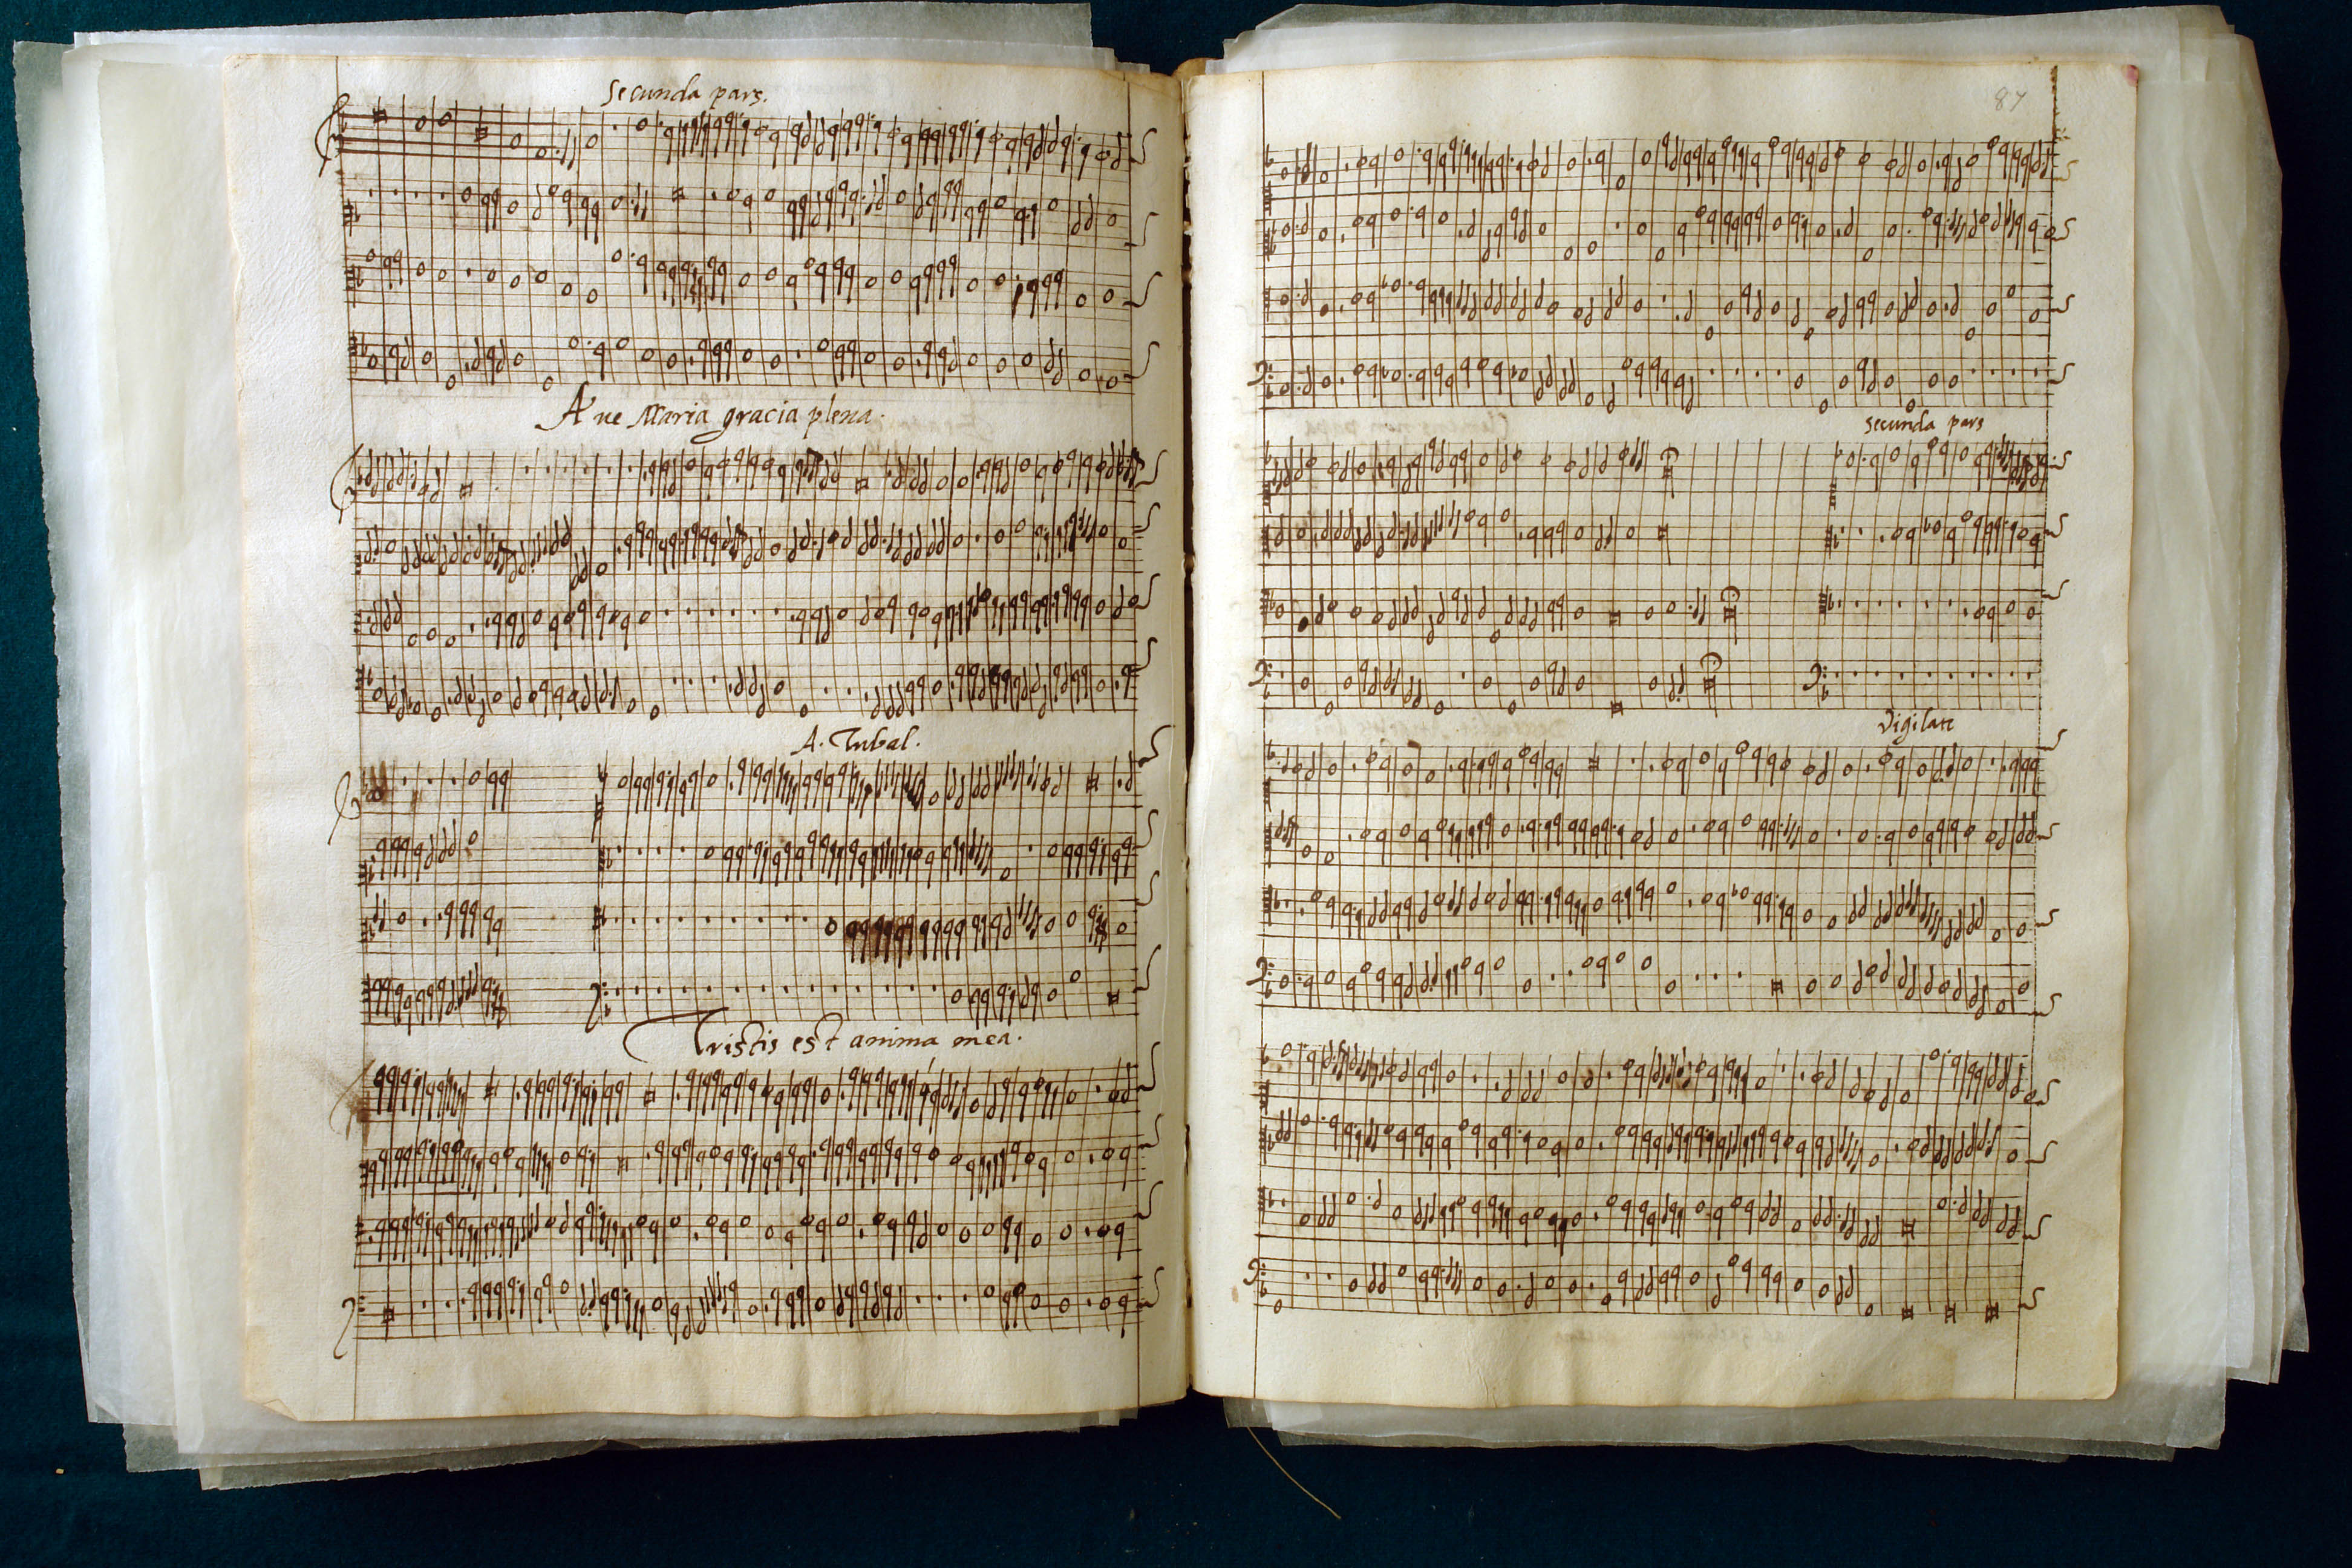 Secunda pars.
Ave Maria gracia plena.
A. Tubal.
Tristis est anima mea.
87
secunda pars
Vigilate